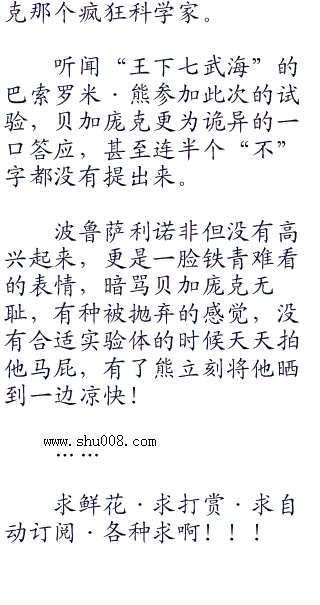 克那个疯狂科学家。
听闻“王下七武海”的
巴索罗米·熊参加此次的试
验，贝加庞克更为诡异的一
口答应，甚至连半个“不”
字都没有提出来。
波鲁萨利诺非但没有高
兴起来，更是一脸铁青难看
的表情，暗骂贝加庞克无
耻，有种被抛弃的感觉，没
有合适实验体的时候天天拍
他马屁，有了熊立刻将他晒
到一边凉快！
www.shu008.com
……
求鲜花·求打赏·求自
动订阅·各种求啊！！！